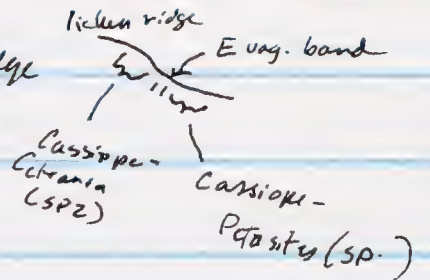 lichen ridge
dge
E vag. band
Cassiope-
Cetraria
(SP2)
Cassiope-
Petasites (SP. )